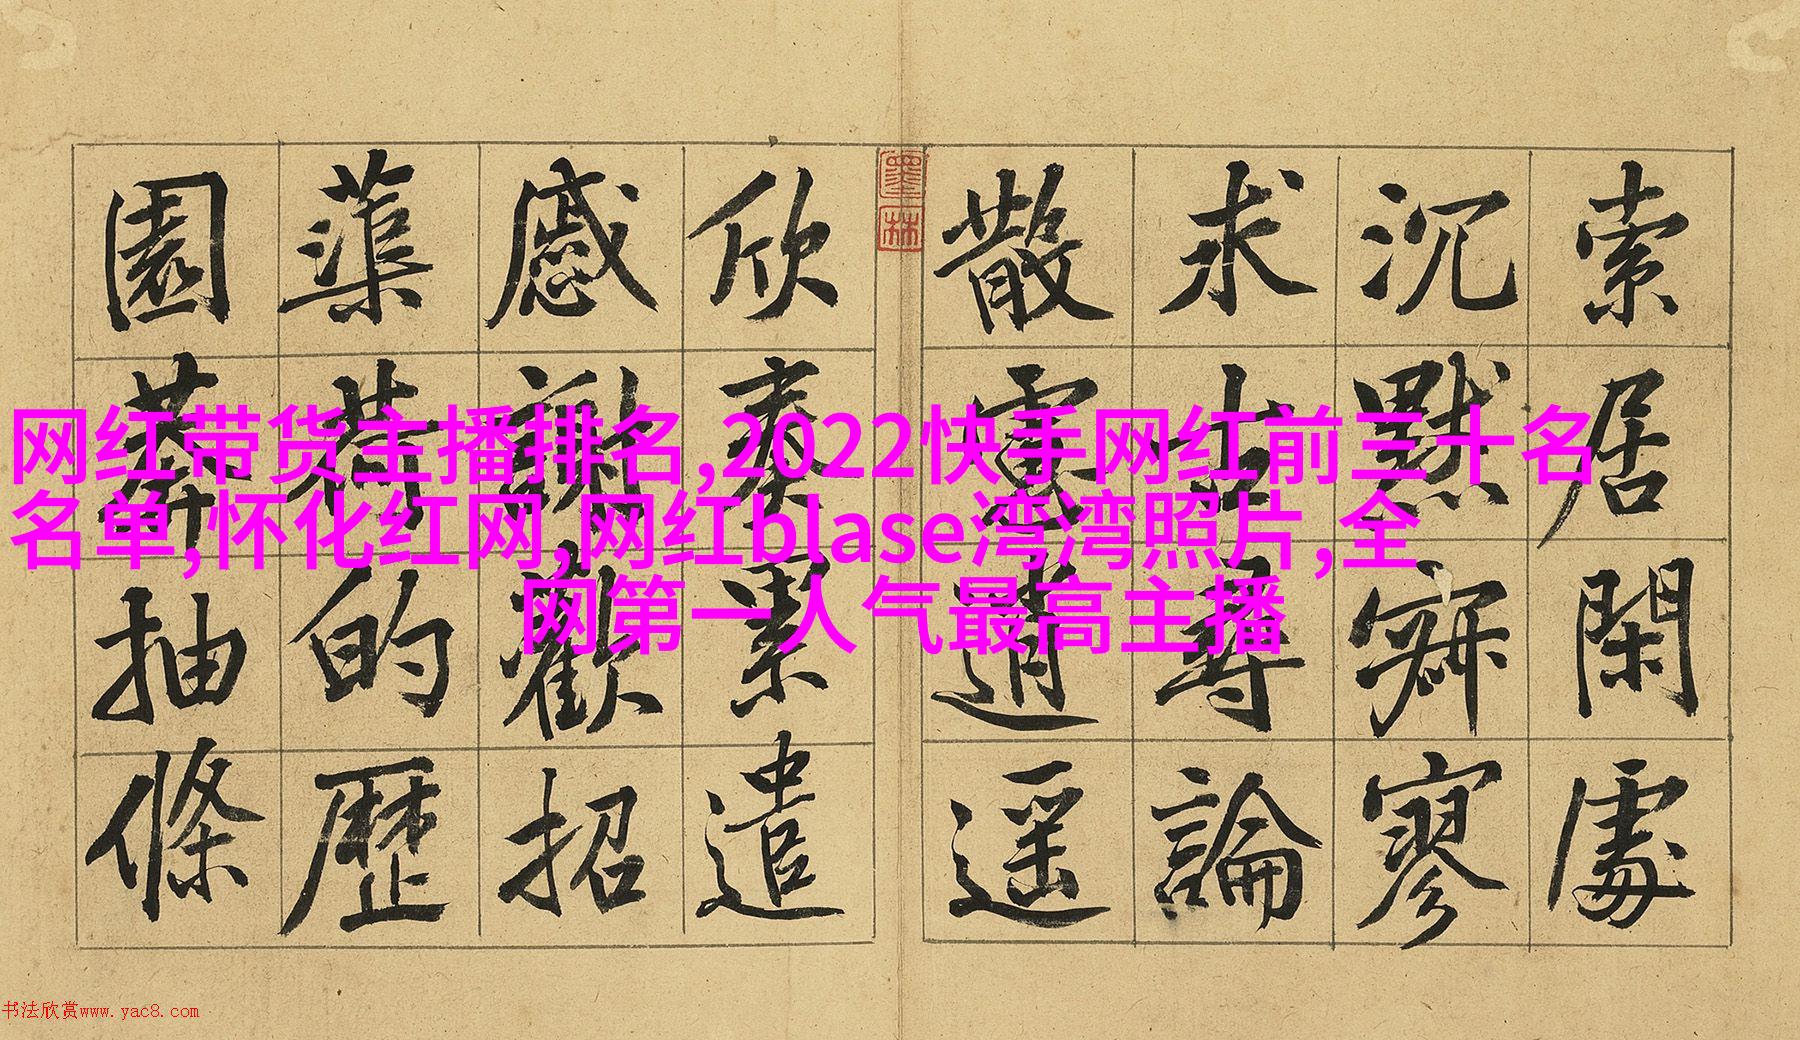 索居閑處
沉默寂寥
求古尋論
散慮逍遥
墨林
欣奏累遣
慼謝歡招
蕖荷的歷
園莽抽條
网红带货主播排名,2022快手网红前三十名
名单,怀化红网,网红blase湾湾照片,全
网第一人气最高主播
书法欣赏www.yac8.com